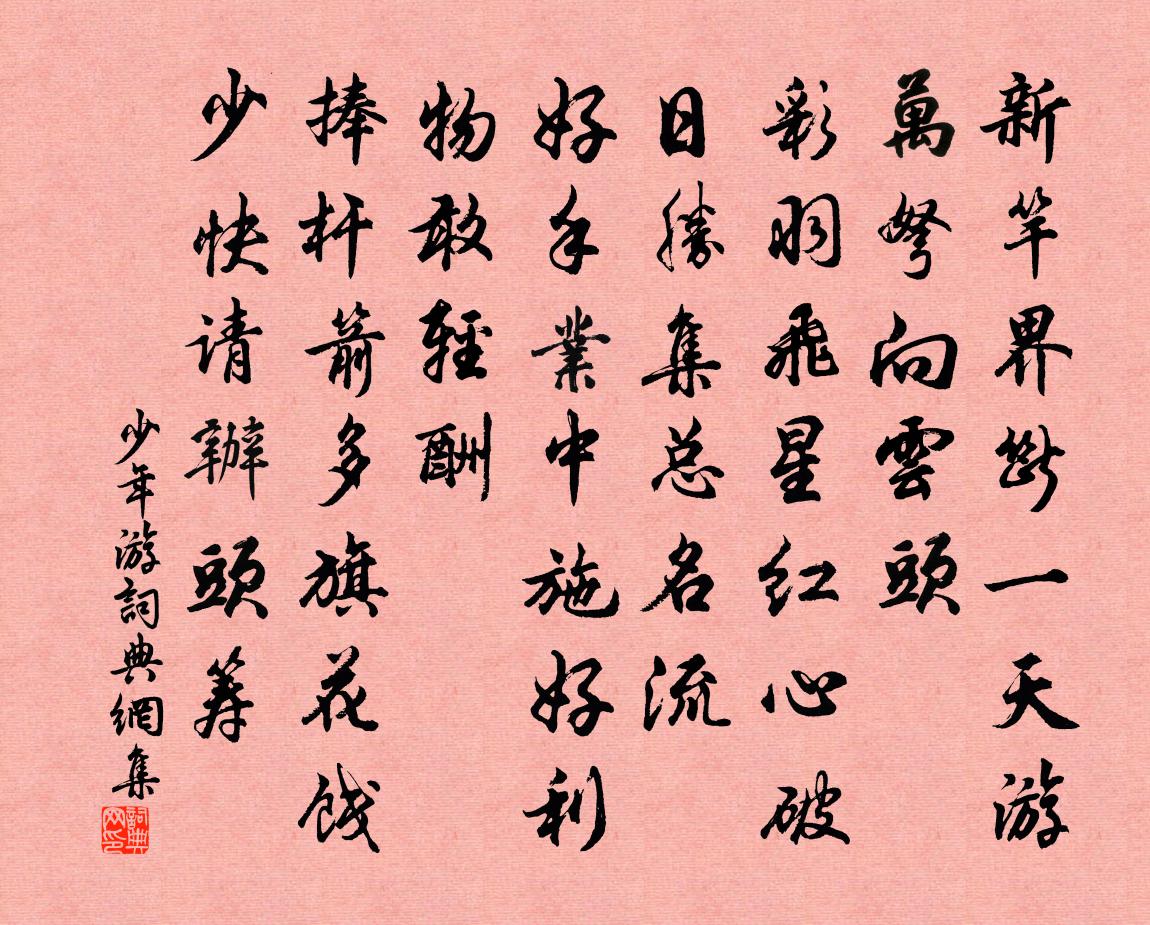 新竿界斷一天游
萬弩向雲頭
彩羽飛星红心破
日勝集总名流
好手業中施好利
物敢輕酬
捧杆箭多旗花餞
少快请辦頭筹
少年游詞典網集
詞典网印